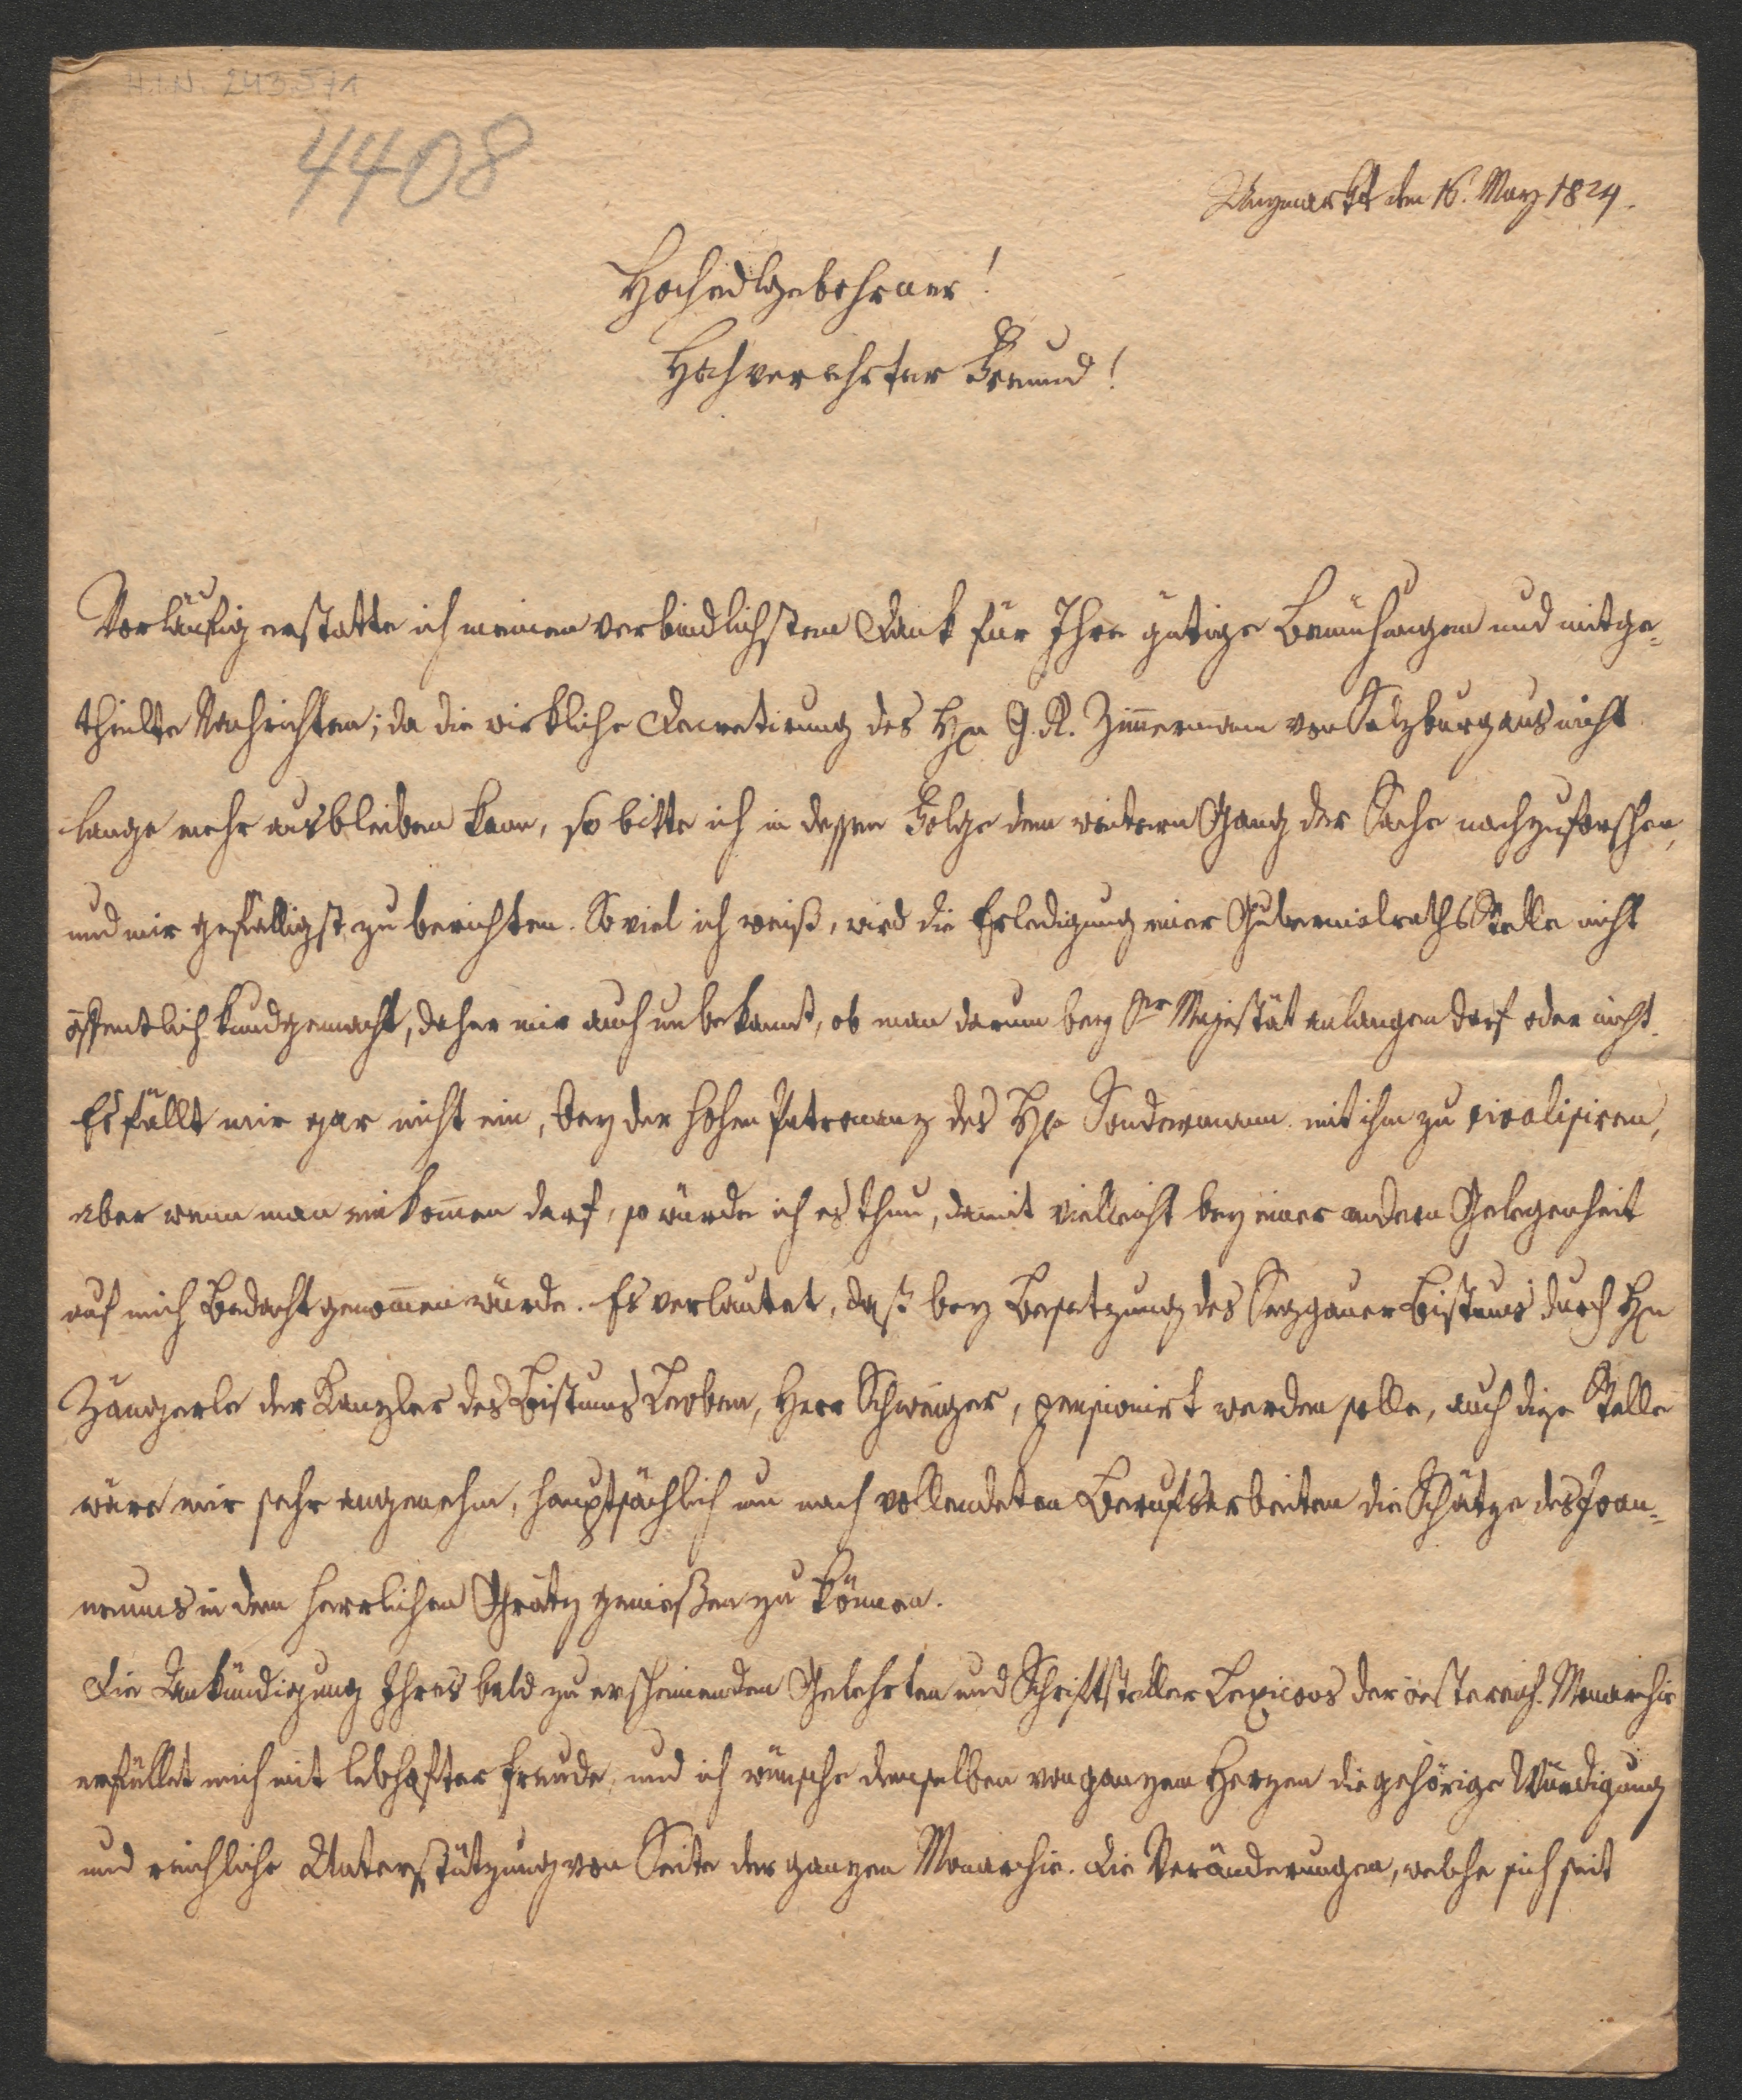 H.I.N. 243.571
4408
Ungmarkt den 16. März 1824.
Hochedlgebohrner!
Hochverehrter Freund!
Vorläufig erstatte ich meinen verbindlichsten Dank für Ihre gütige Bemühungen und mitge-
theilte Nachrichten; da die wirkliche Decretirung des Hn G. R. Zim̅ermann von Salzburg aus nicht
lange mehr ausbleiben kann, so bitte ich in dessen Folge dem weitern Gang der Sache nachzuforschen,
und mir gefälligst zu berichten. So viel ich weiß, wird die Erledigung einer Gubernialraths Stelle nicht
öffentlich kundgemacht, daher mir auch unbekannt, ob man darum bey Sr Majestät anlangen darf oder nicht.
Es fällt mir gar nicht ein, bey der hohen Patronanz des Hn Sondermann mit ihm zu rivalisiren,
aber wenn man einkom̅en darf, so würde ich es thun, damit vielleicht bey einer andern Gelegenheit
auf mich Bedacht genom̅en würde. Es verlautet, daß bey Besetzung des Seggauer Bistums durch Hn
Zängerle der Kanzler des Bistums Leoben, Herr Schweiger, pensionirt werden solle, auch diese Stelle
wäre mir sehr angenehm, hauptsächlich um nach vollendeten Berufsarbeiten die Schätze des Joan-
neums in dem herrlichen Grätz genießen zu können.
Die Ankündigung Ihres bald zu erscheinenden Gelehrten und Schriftsteller Lexicons der oesterreich. Monarchie
erfüllet mich mit lebhafter Freude, und ich wünsche demselben von ganzem Herzen die gehörige Würdigung
und reichliche Unterstützung von Seite der ganzen Monarchie. Die Veränderungen, welche sich seit